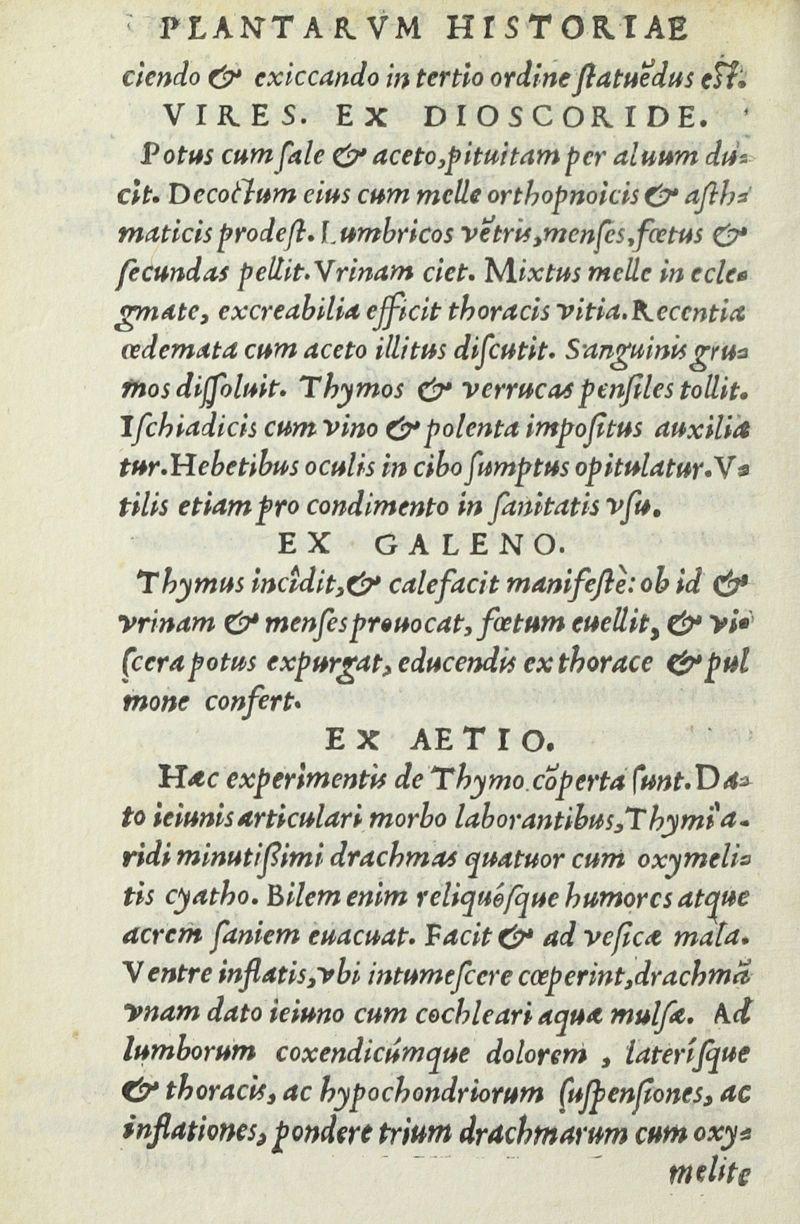 PLANTARVM HISTORIAE
ciendo & exiccando in tertio ordine ſtatuẽdus eſt.
VIRES. EX DIOSCORIDE.
Potus cum ſale & aceto, pituitam per aluum du-
cit. Decoctum eius cum melle orthopnoicis & aſth-
maticis prodeſt. Lumbricos vẽtris, menſes, fœtus &
ſecundas pellit. Vrinam ciet. Mixtus melle in ecle-
gmate, excreabilia efficit thoracis vitia. Recentia
œdemata cum aceto illitus diſcutit. Sanguinis gru-
mos diſſoluit. Thymos & verrucas penſiles tollit.
Iſchiadicis cum vino & polenta impoſitus auxilia
tur. Hebetibus oculis in cibo ſumptus opitulatur. V-
tilis etiam pro condimento in ſanitatis vſu.
EX GALENO.
Thymus incîdit, & calefacit manifeſtè: ob id &
vrinam & menſes prouocat, fœtum euellit, & vi-
ſcera potus expurgat, educendis ex thorace & pul
mone confert.
EX AETIO.
Hæc experimentis de Thymo cõperta ſunt. Da-
to ieiunis articulari morbo laborantibus, Thymi a-
ridi minutißimi drachmas quatuor cum oxymeli-
tis cyatho. Bilem enim reliquéſque humores atque
acrem ſaniem euacuat. Facit & ad veſicæ mala.
Ventre inflatis, vbi intumeſcere cœperint, drachmã
vnam dato ieiuno cum cochleari aquæ mulſæ. Ad
lumborum coxendicúmque dolorem, lateríſque
& thoracis, ac hypochondriorum ſuſpenſiones, ac
inflationes, pondere trium drachmarum cum oxy-
melite